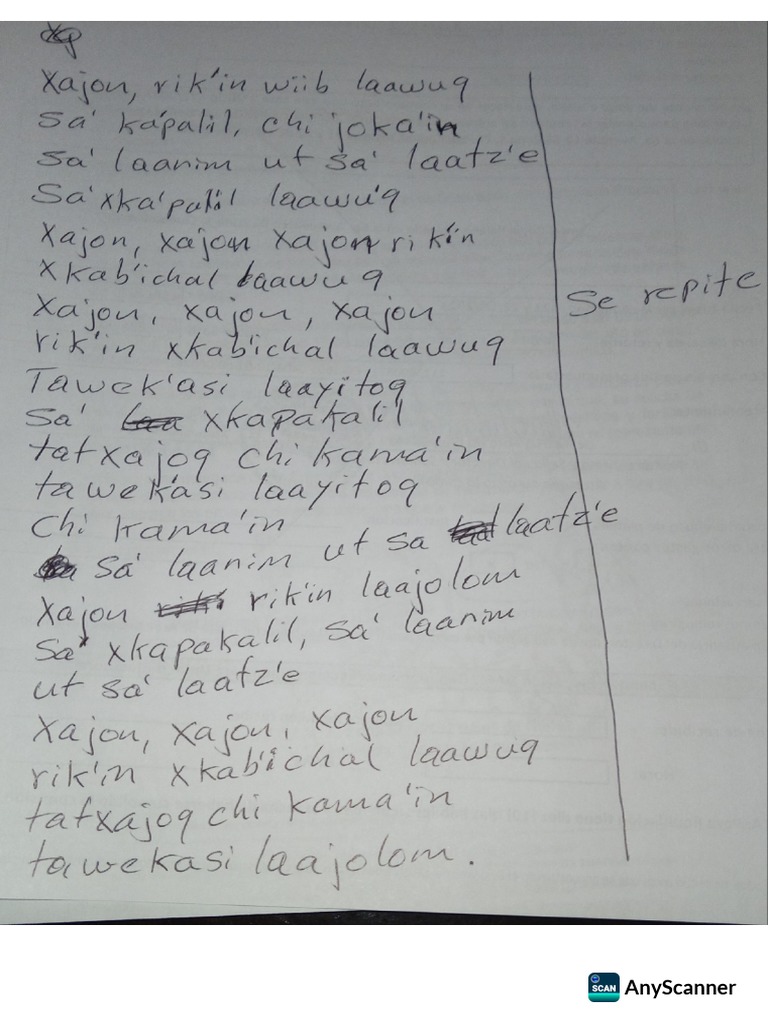 Xajon, rik'in wiib laawuq
Sa' ka'palil, chi joka'in
Sa' laanim ut sa' laatz'e
Sa' xka'palil laawu'q
Xajon, xajon xajon rik'in
xkab'ichal laawuq
Xajon, xajon, xajon
rik'in xkab'ichal laawuq
Se repite
Tawek'asi laayitoq
Sa' xkapakalil
tatxajoq chi kama'in
tawekasi laayitoq
Chi kama'in
sa' laanim ut sa laatz'e
Xajon rik'in laajolom
Sa' xkapakalil, sa' laanim
ut sa' laatz'e
Xajon, xajon, xajon
rik'in xkab'ichal laawuq
tatxajoq chi kama'in
tawekasi laajolom.
SCAN AnyScanner